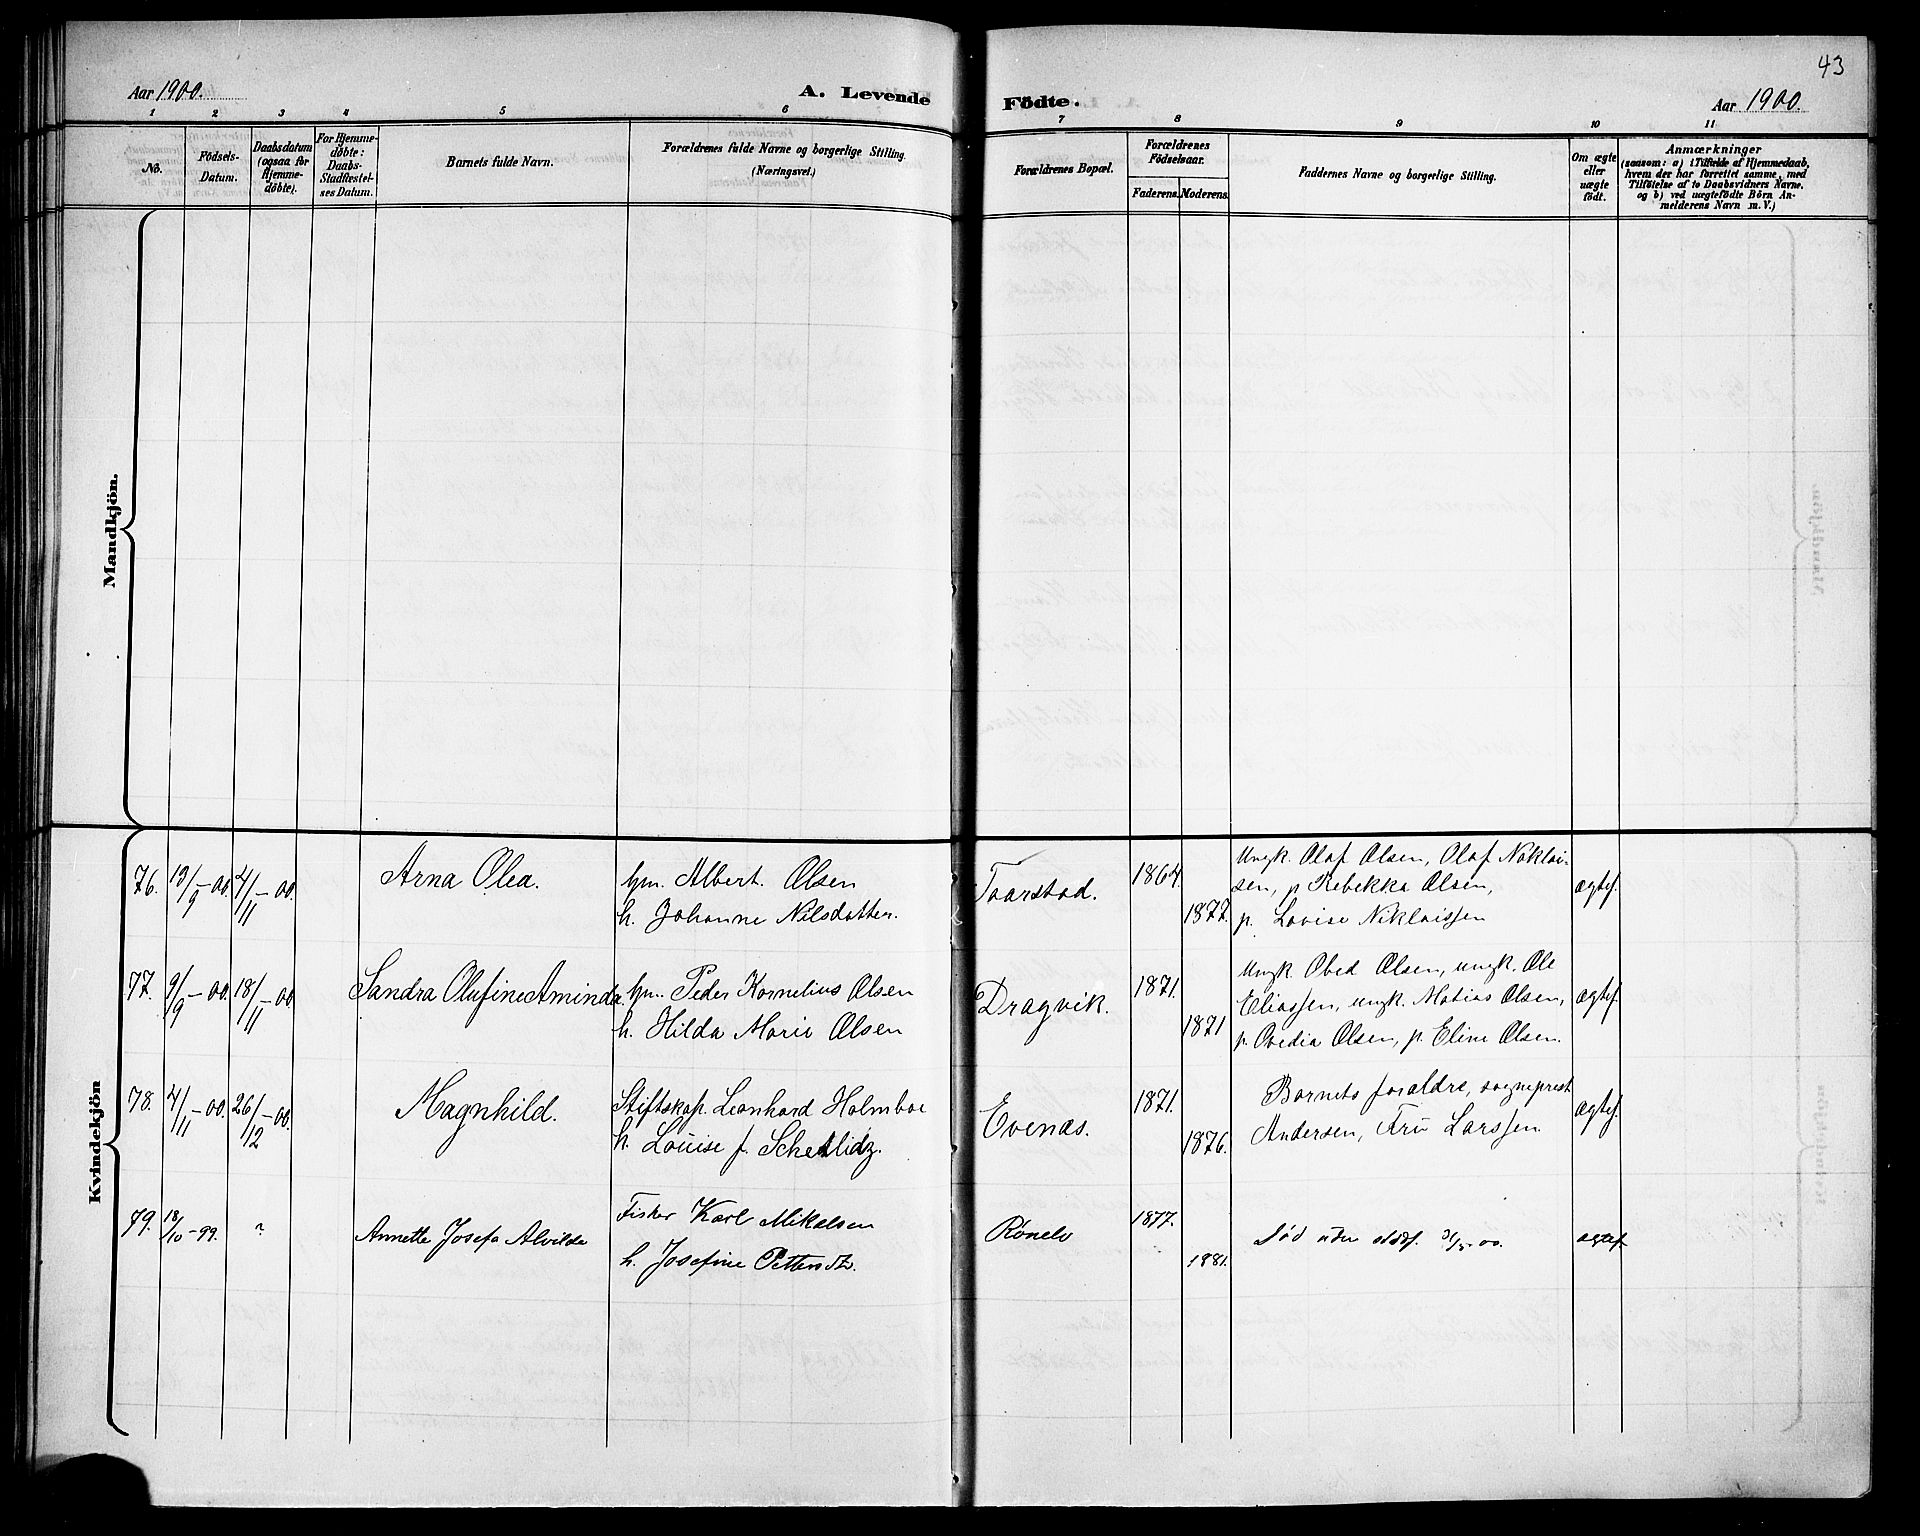 43
Aar 1900.
A. Levende
Födte.
Aar 1900.
1 2 3 4 5 6 7 8 9 10 11
No.
Födsels-
Datum.
Daabsdatum
(ogsaa for
Hjemme-
döbte).
For Hjemme-
döbte:
Daabs-
Stadfæstel-
ses Datum.
Barnets fulde Navn.
Forældrenes fulde Navne og borgerlige Stilling.
(Næringsvei.)
Forældrenes Bopæl.
Forældrenes
Födselsaar.
Faderens.
Moderens.
Faddernes Navne og borgerlige Stilling.
Om ægte
eller
uægte
födt.
Anmærkninger
(saasom: a) i Tilfælde af Hjemmedaab,
hvem der har forrettet samme, med
Tilföielse af to Daabsvidners Navne,
og b) ved uægtefödte Börn An-
melderens Navn m. V.)
Mandkjön.
Kvindekjön
76. 19/9-00. 4/11-00. Arna Olea.
Gm. Albert. Olsen
h. Johanne Nilsdatter.
Taarstad.
1864.
1877.
Ungk. Olaf Olsen, Olaf Niklai-
sen, p. Rebekka Olsen,
p. Lovise Niklaissen
ægtef.
77. 9/9-00. 18/11-00. Sandra Olufine Aminda.
Gm. Peder Kornelius Olsen
h. Hilda Marie Olsen
Dragvik.
1871.
1871
Ungk. Obed Olsen, ungk. Ole
Eliassen, ungk. Matias Olsen,
p. Ovedia Olsen, p. Eline Olsen.
ægtef.
78. 4/11-00. 26/12-00. Magnhild.
Stiftskap. Leonhard Holmboe
h. Louise f. Schetlidz.
Evenæs.
1871.
1876.
Barnets forældre, sogneprest
Andersen, Fru Larssen.
ægtef.
79. 18/10-99. ? Annette Josefa Alvilde
Fisker Karl Mikalsen
h. Josefine Pettersdtr.
Rønelv
1877.
1881.
Død uden
ægtef.